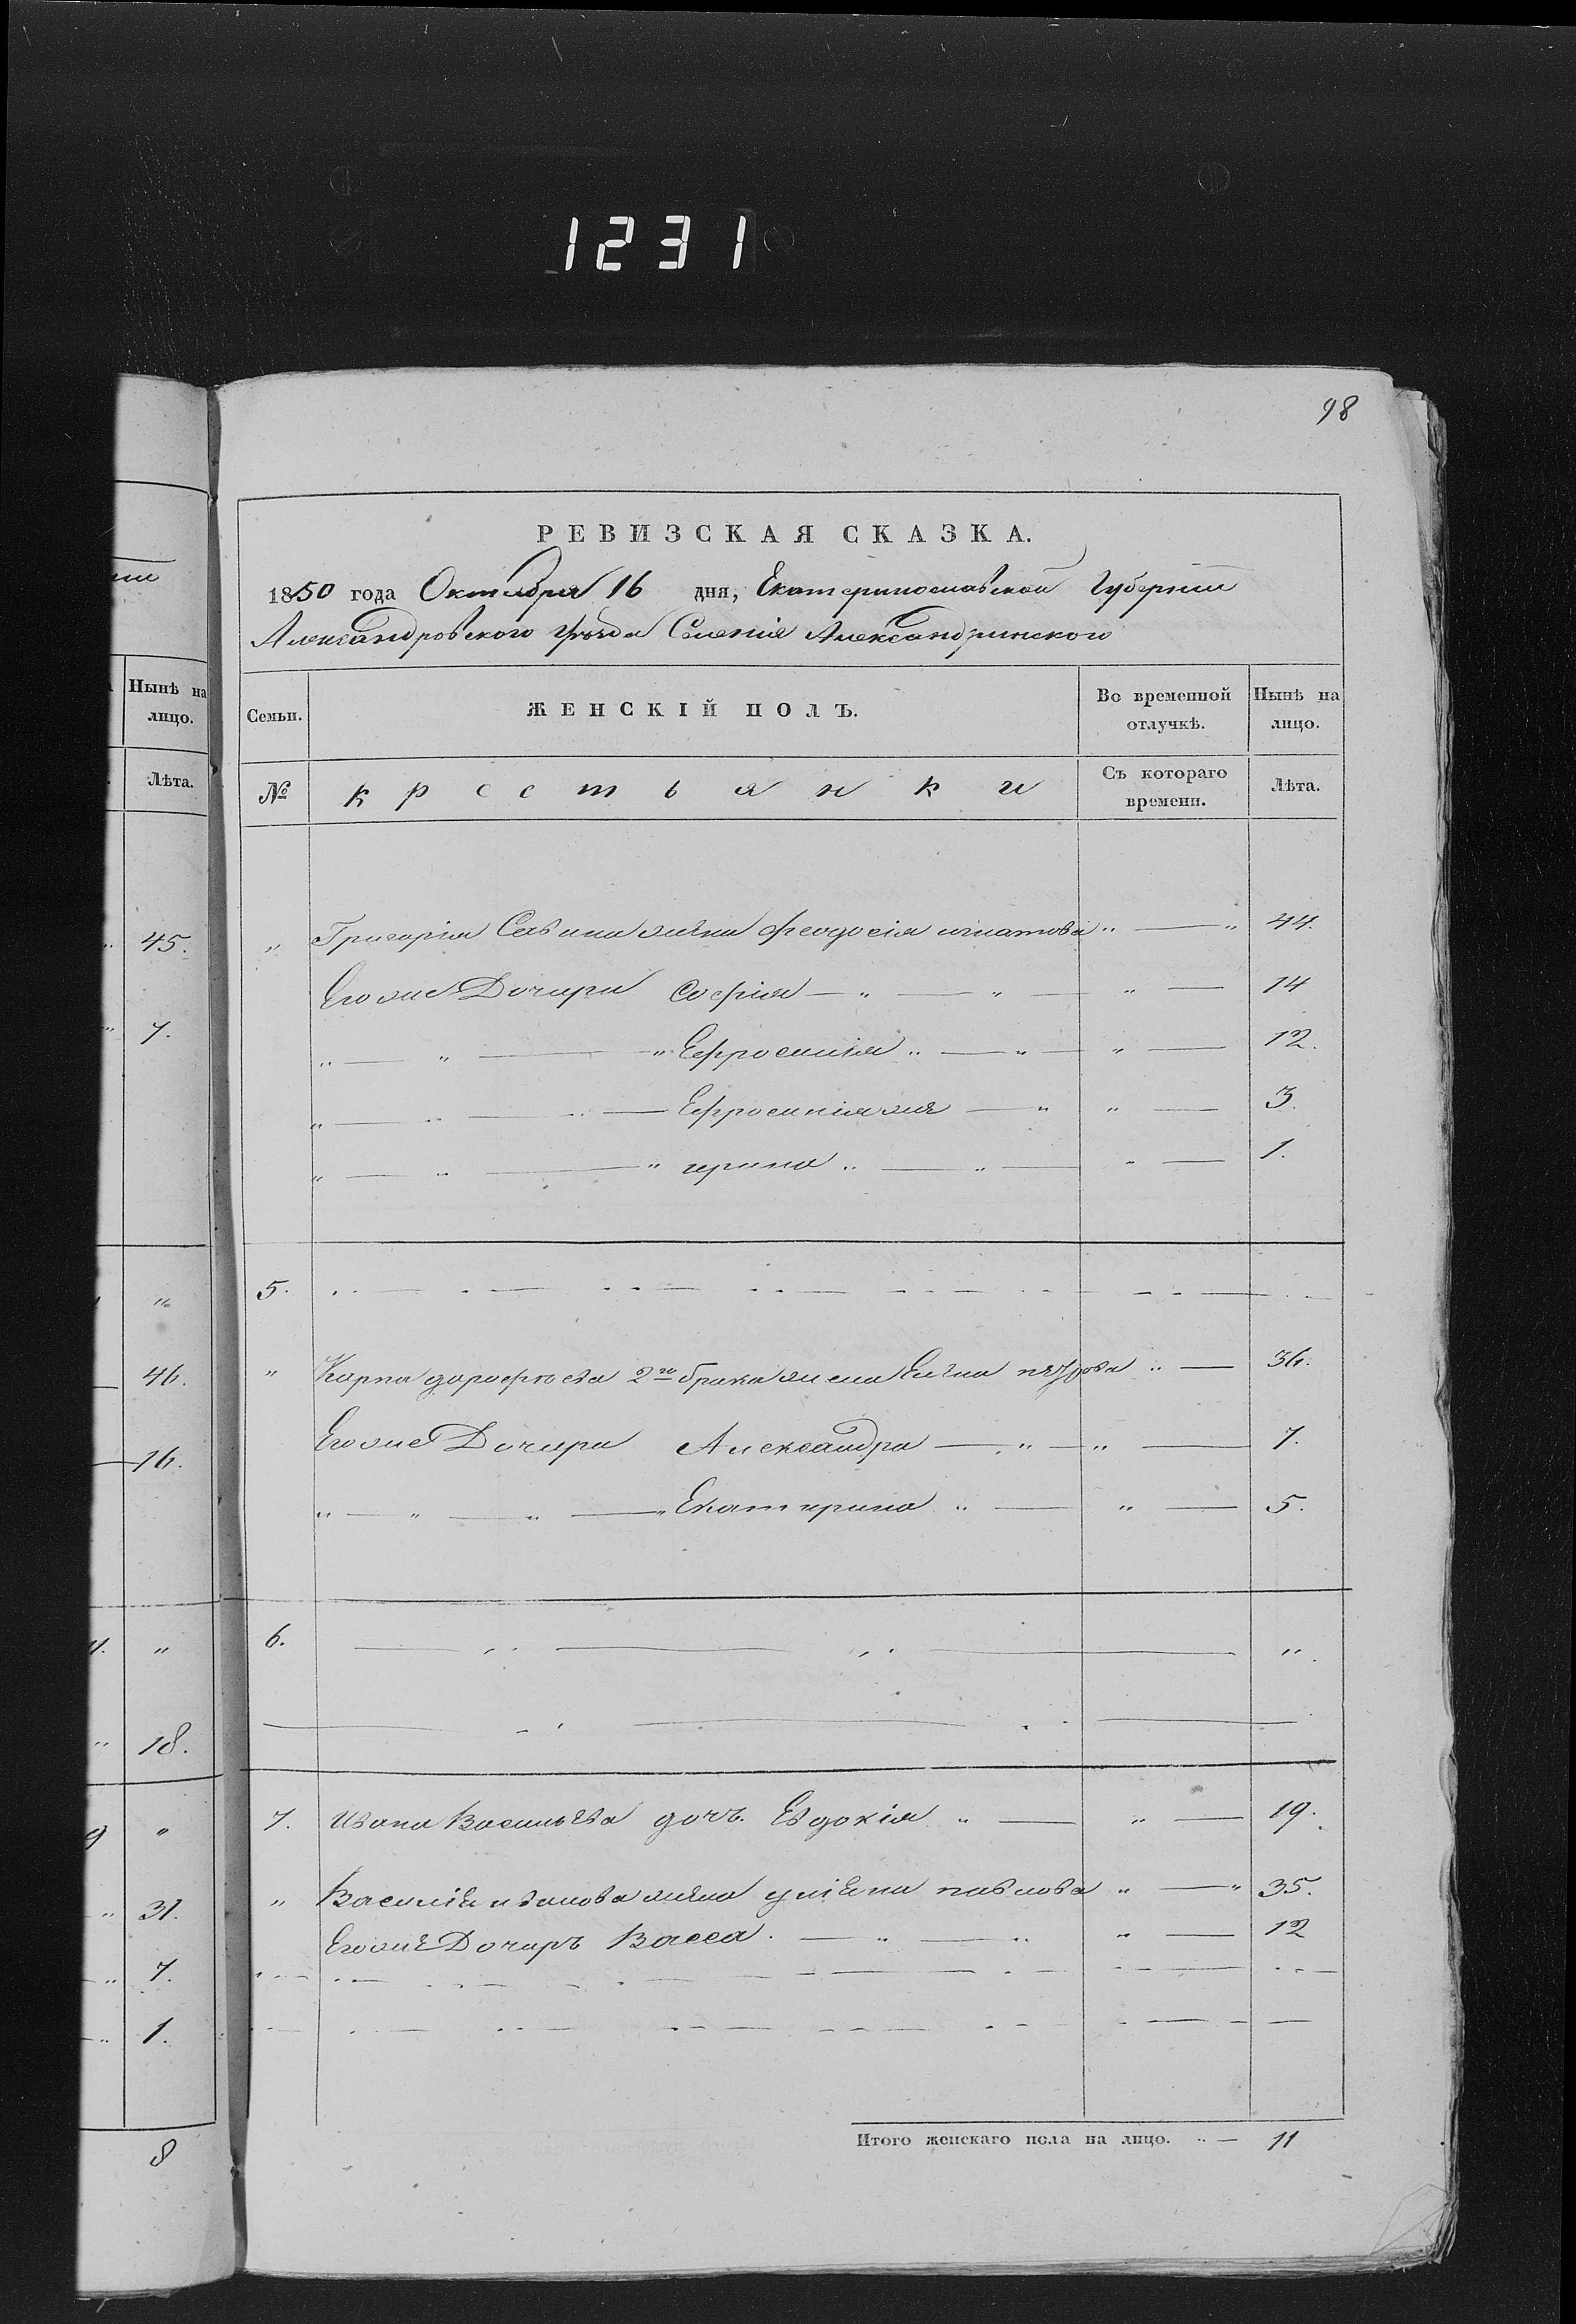 1231
98
РЕВИЗСКАЯ СКАЗКА.
1850 года Октября 16 дня, Екатеринославской Губернии
Александровского уѣзда Селенія Александринского
Семьи. ЖЕНСКІЙ ПОЛЪ. Во временной отлучкѣ. Нынѣ на лицо.
№ крестьянки Съ котораго времени. Лѣта.
" Григорія Савина жена феодосія игнатова " — " 44.
Егоже Дочери Софія — " — " — " — 14
" — " — " Ефросинія " — " — " — 12.
" — " — " — Ефросиніяже — " " — 3.
" — " — " ирина " — " — " — 1.
5.
" Карпа дорофѣева 2го брака жена Елена петрова " — 36.
Егоже Дочери Александра — " — " — 7.
" — " — " — " Екатерина " — " — 5.
6. — " — " — "
7. Ивана Васильева дочь Евдокія " — " — 19.
" Василія иванова жена уліяна павлова " — " 35.
Егоже Дочерь Васса. — " — " " — 12
Итого женскаго пола на лицо. " — 11
Нынѣ на
лицо.
Лѣта.
45.
7.
"
46.
16.
"
18.
"
31.
7.
1.
8